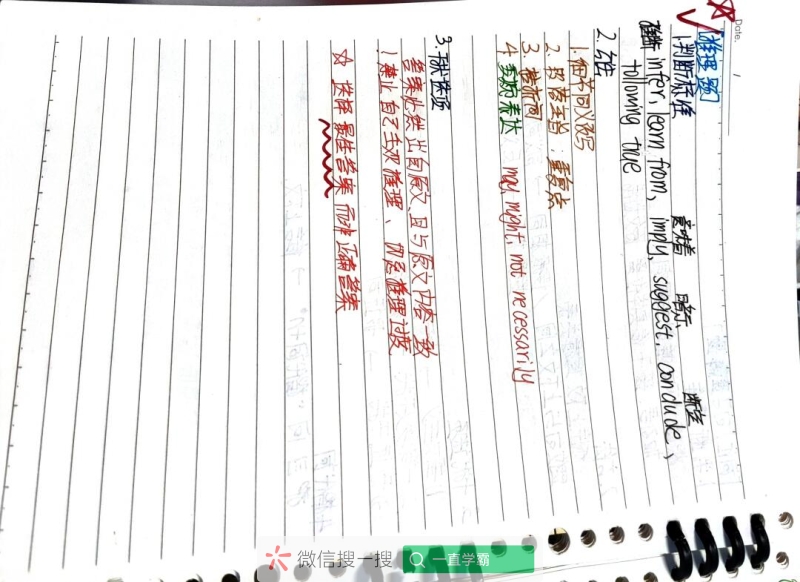 Date.
推理题
1.判断标准
意味着 暗示 断定
推断 infer, learn from, imply, suggest, conclude、
following true
2.
1.细节同义改写
2.段落主旨：重复点
3.
4.委婉表达 may, might, not necessarily
3.干扰选项
答案必然出自原文,且与原文内容一致
！禁止自己主观推理、切忌推理过度
☆ 选择最佳答案而非正确答案
微信搜一搜
一直学霸